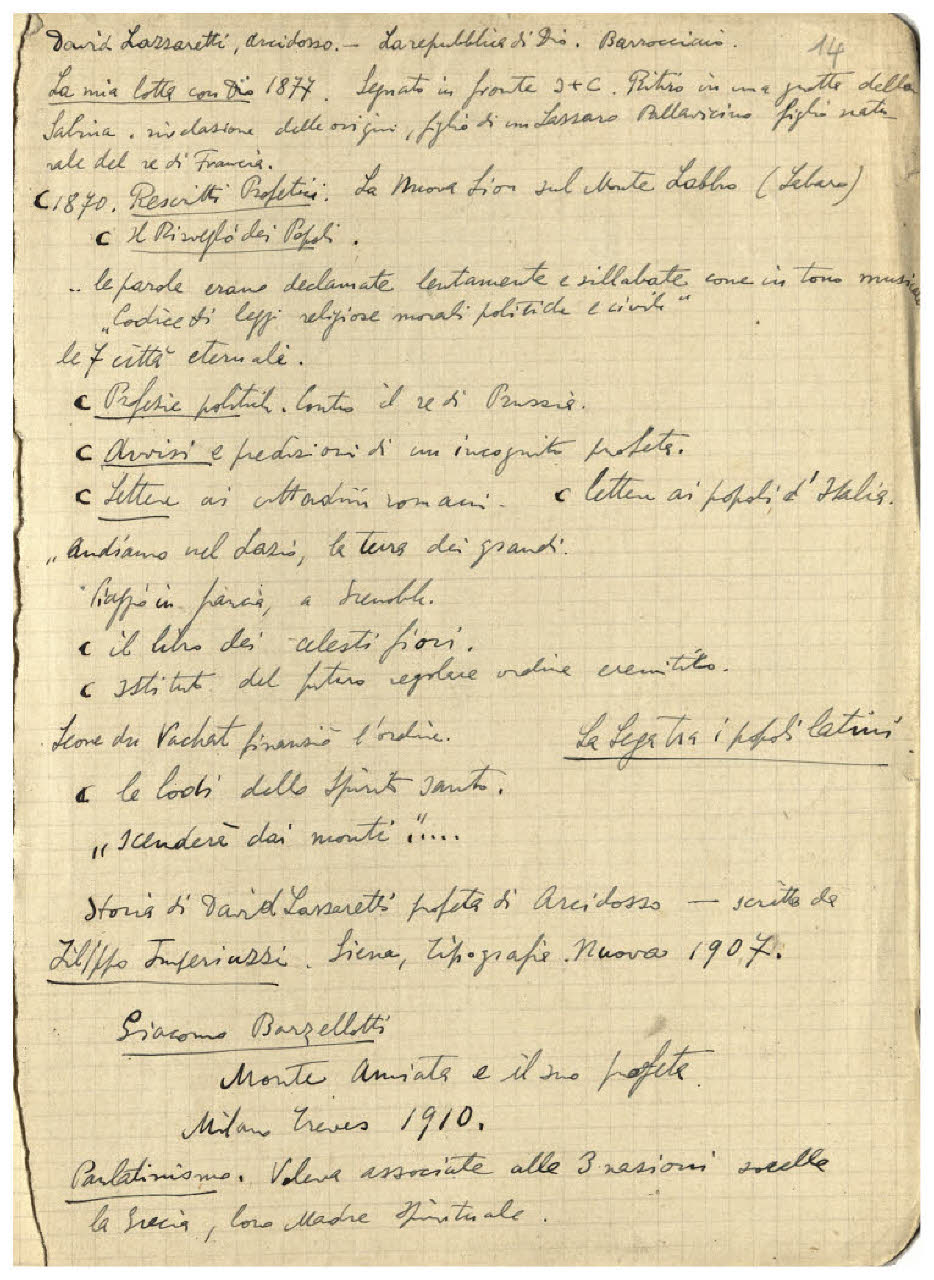 14
David Lazzaretti, Arcidosso. – La repubblica di Dio. Barrocciaio.
La mia lotta con Dio 1877. Segnato in fronte Ɔ+C. Ritiro in una grotta della
Sabina. rivelazione delle origini, figlio di un Lazzaro Pallavicino figlio natu-
rale del re di Francia.
C 1870. Rescritti Profetici. La Nuova Sion sul Monte Labbro (Labaro)
C Il Risveglio dei Popoli.
.. le parole erano declamate lentamente e sillabate come in tono musicale
„Codice di leggi religiose morali politiche e civili"
le 7 città eternali.
C Profezie politiche. Contro il re di Prussia.
C Avvisi e predizioni di un incognito profeta.
C Lettere ai cittadini romani. C lettere ai popoli d'Italia.
„Andiamo nel Lazio, la terra dei grandi.
in Francia, a Grenoble.
C il libro dei celesti fiori.
C Istituto del futuro regolare ordine eremitico.
Leone du Vachat finanziò l'ordine. La Lega tra i popoli latini
C le lodi dello Spirito Santo.
„Scenderà dai monti".....
Storia di David Lazzaretti profeta di Arcidosso — scritta da
Filippo Imperiuzzi. Siena, tipografia Nuova 1907.
Giacomo Barzellotti
Monte Amiata e il suo profeta.
Milano Treves 1910.
Panlatinismo. Voleva associate alle 3 nazioni sorelle
la Grecia, loro Madre Spirituale.